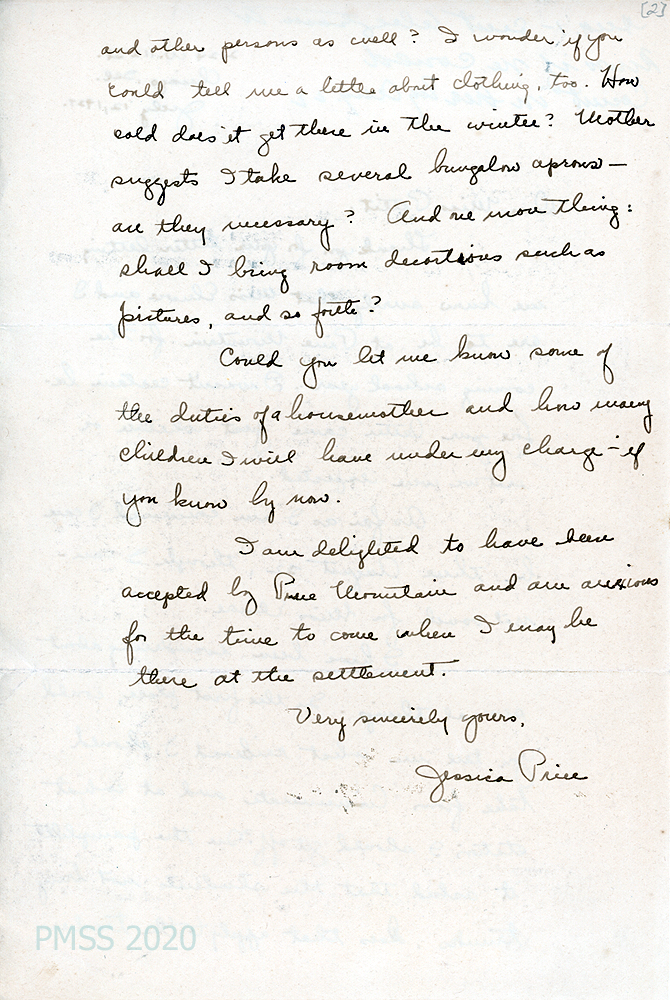 [2]
and other persons as well? I wonder if you
could tell me a little about clothing, too. How
cold does it get there in the winter? Mother
suggests I take several bungalow aprons—
are they necessary? And one more thing:
shall I bring room decorations such as
pictures, and so forth?
Could you let me know some of
the duties of a housemother and how many
children I will have under my charge - if
you know by now.
I am delighted to have been
accepted by Pine Mountain and am anxious
for the time to come when I may be
there at the settlement.
Very sincerely yours,
Jessica Price
PMSS 2020